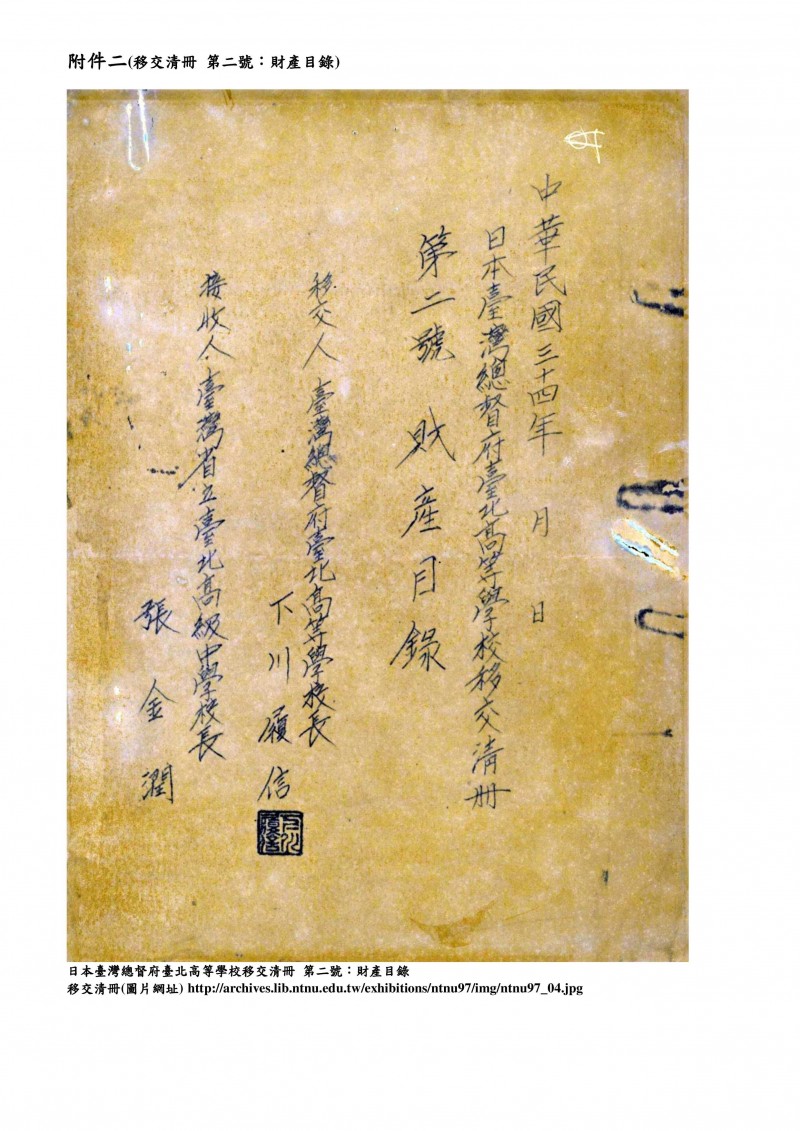 附件二(移交清冊 第二號：財產目錄)
中華民國三十四年 月 日
日本臺灣總督府臺北高等學校移交清冊
第二號 財產目錄
移交人 臺灣總督府臺北高等學校長
下川履信
接收人 臺灣省立臺北高級中學校長
張金潤
日本臺灣總督府臺北高等學校移交清冊 第二號：財產目錄
移交清冊(圖片網址) http://archives.lib.ntnu.edu.tw/exhibitions/ntnu97/img/ntnu97_04.jpg